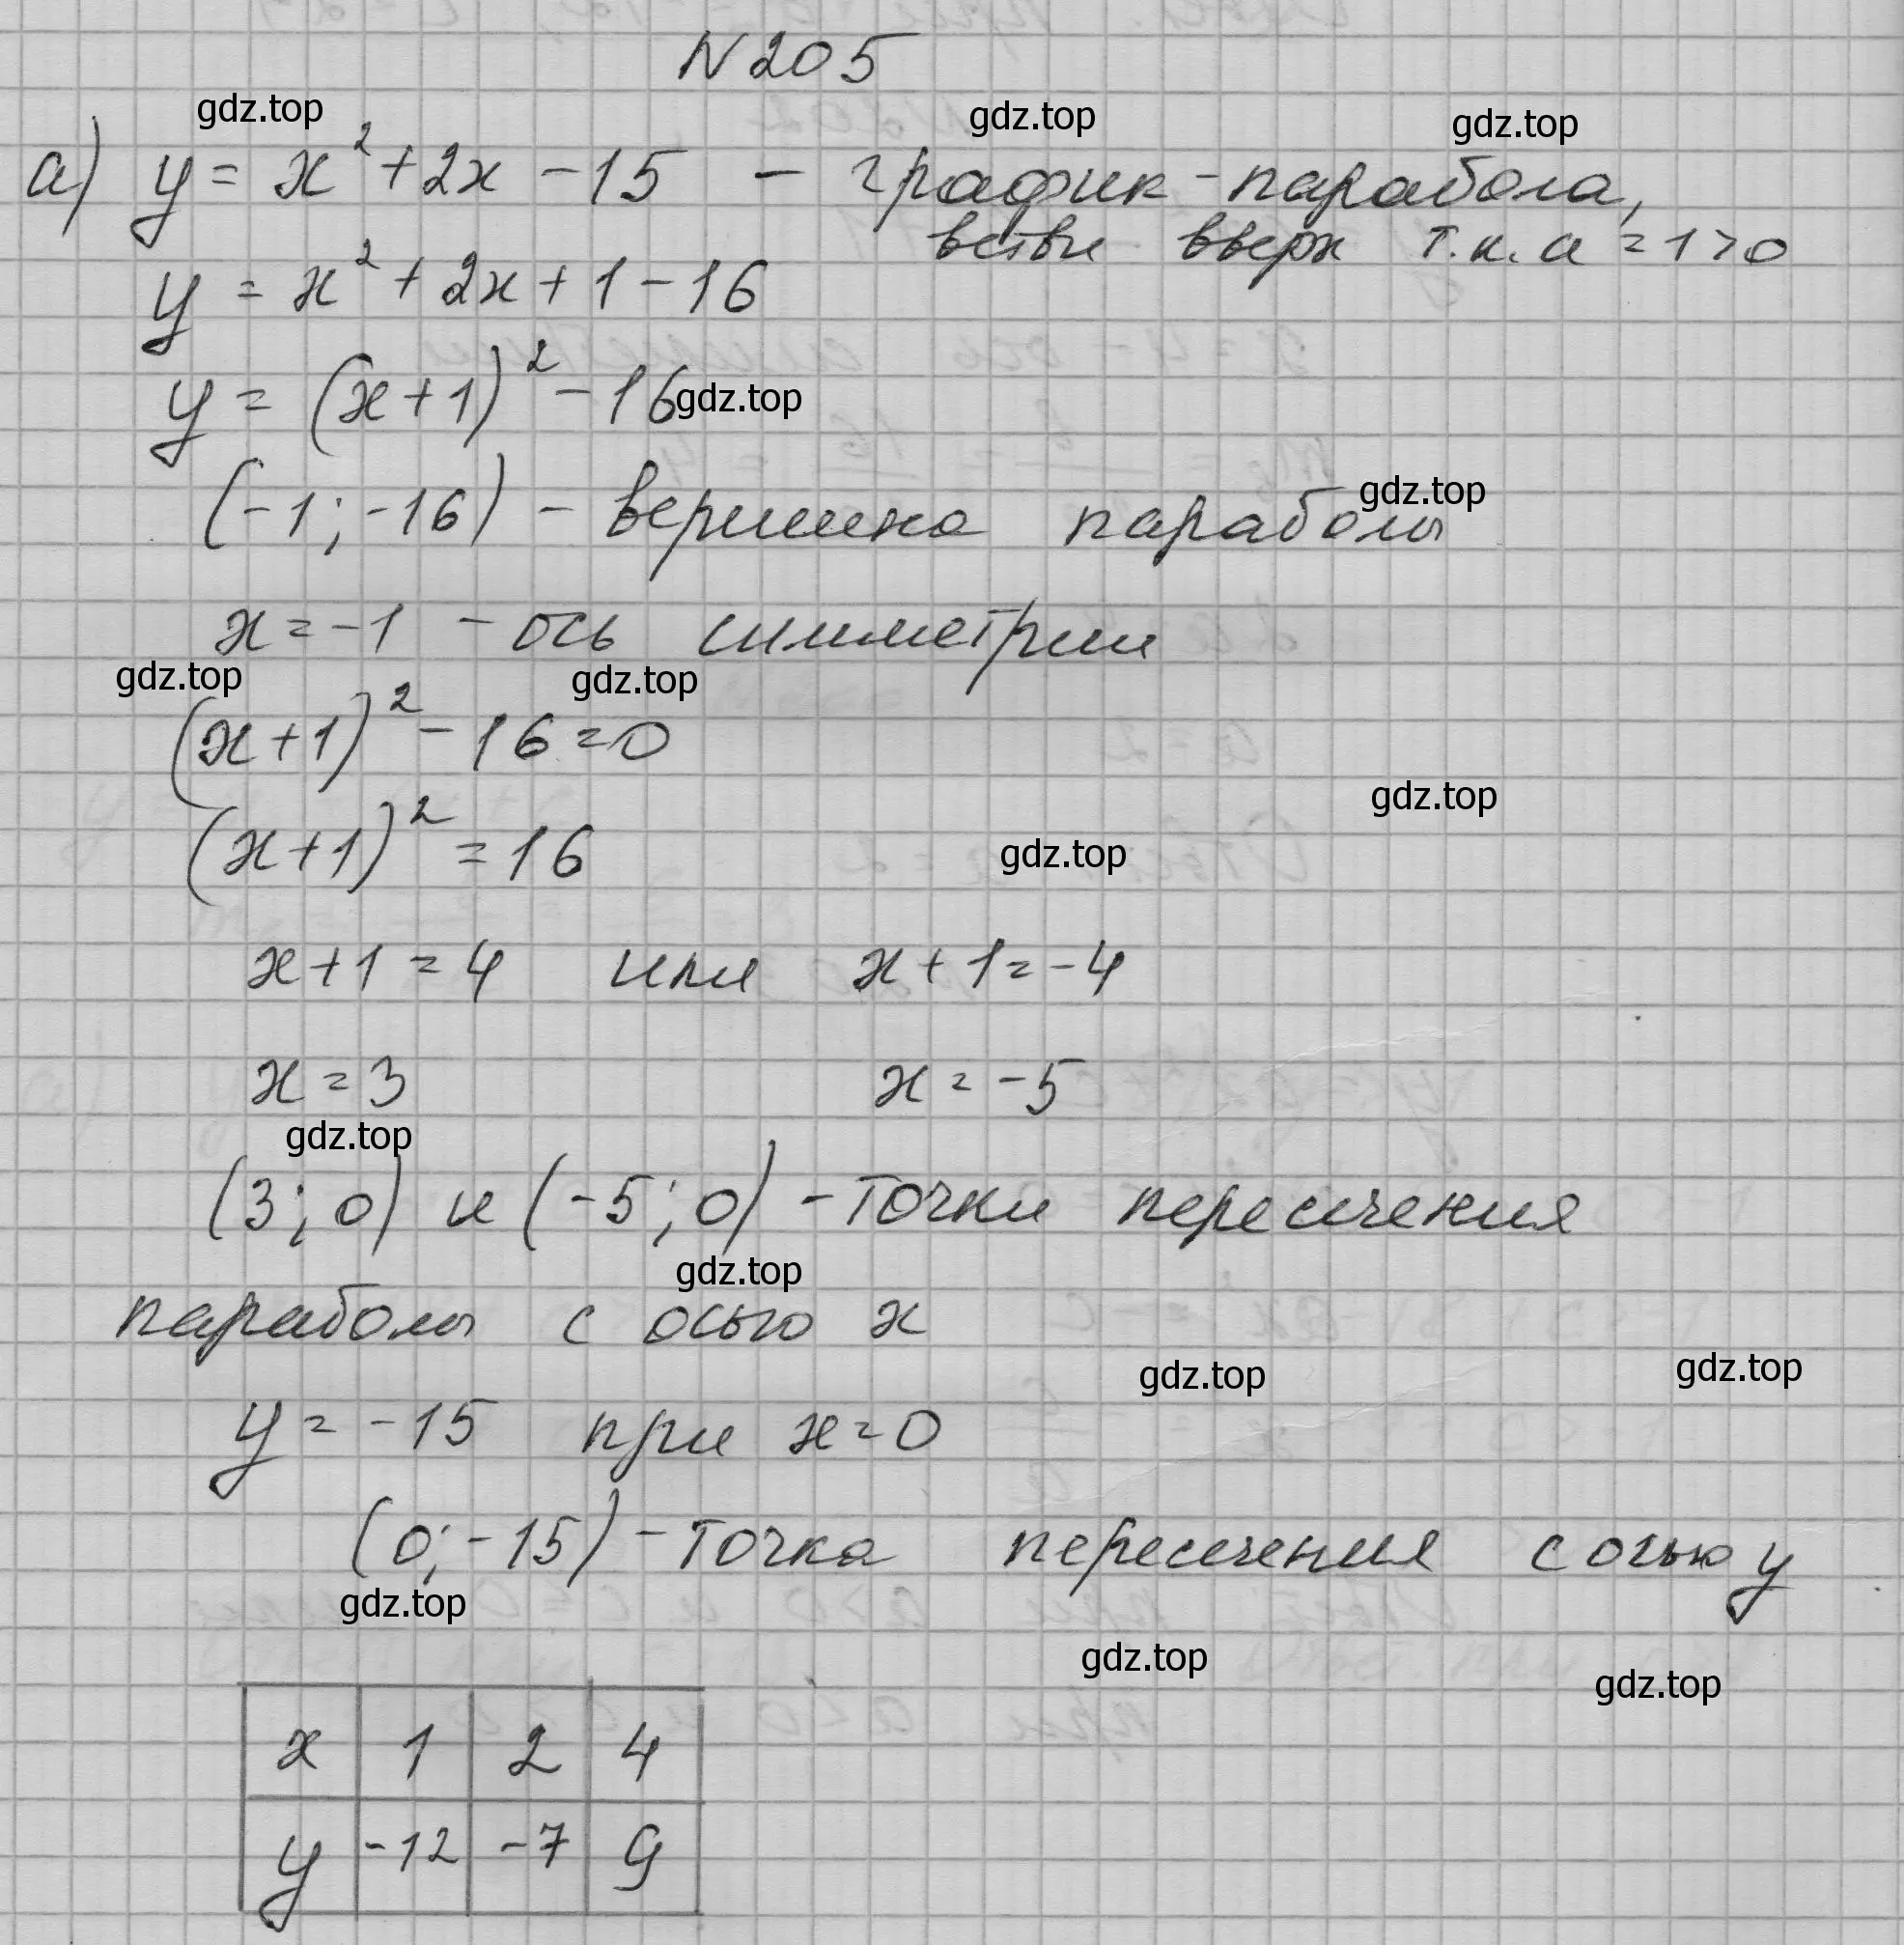 N 205
gdz.top gdz.top gdz.top
а) y = x² + 2x - 15 - график - парабола,
ветви вверх т.к. a = 1 > 0
y = x² + 2x + 1 - 16
y = (x + 1)² - 16 gdz.top
gdz.top
(-1; -16) - вершина параболы
x = -1 - ось симметрии
gdz.top gdz.top
(x + 1)² - 16 = 0
gdz.top
(x + 1)² = 16 gdz.top
x + 1 = 4 или x + 1 = -4
x = 3 x = -5
gdz.top
(3; 0) и (-5; 0) - точки пересечения
gdz.top
параболы с осью x
gdz.top gdz.top
y = -15 при x = 0
(0; -15) - точка пересечения с осью y
gdz.top
gdz.top gdz.top
x 1 2 4
y -12 -7 9